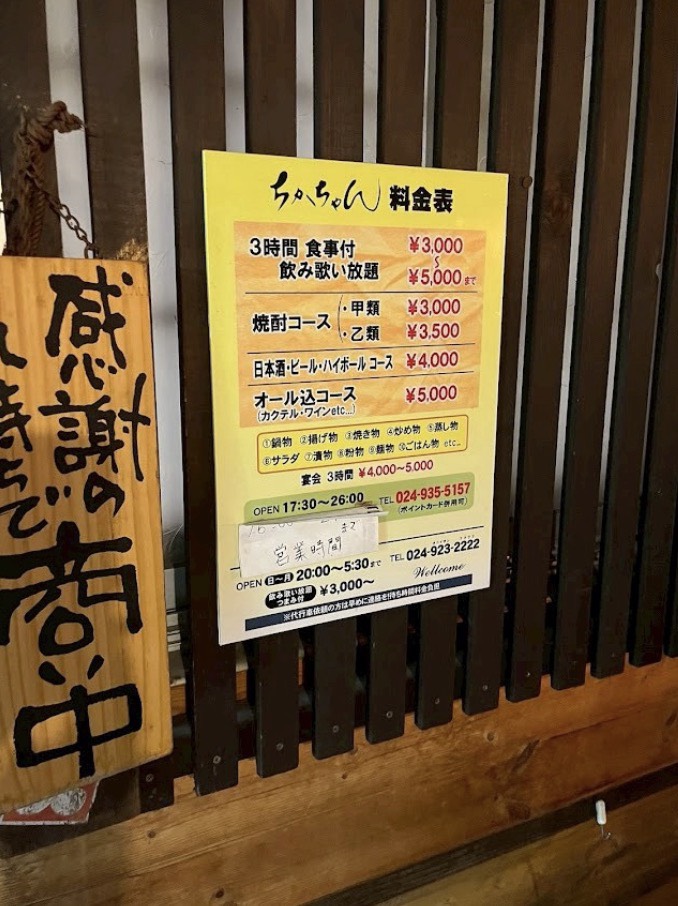 感謝の
商い中
待ちで
ちかちゃん 料金表
3時間 食事付 ¥3,000
飲み歌い放題 〜
¥5,000まで
焼酎コース ・甲類 ¥3,000
・乙類 ¥3.500
日本酒・ビール・ハイボール コース ¥4,000
オール込コース ¥5,000
(カクテル・ワインetc...)
①鍋物 ②揚げ物 ③焼き物 ④炒め物 ⑤蒸し物
⑥サラダ ⑦漬物 ⑧粉物 ⑨麺物 ⑩ごはん物 etc...
宴会 3時間 ¥4,000〜5.000
OPEN 17:30〜26:00 TEL 024-935-5157
(ポイントカード併用可)
まで
営業時間
OPEN 日〜月 20:00〜5:30まで TEL 024-923-2222
飲み歌い放題 つまみ付 ¥3,000〜 Wellcome
※代行車依頼の方は早めに連絡を!待ち時間料金負担